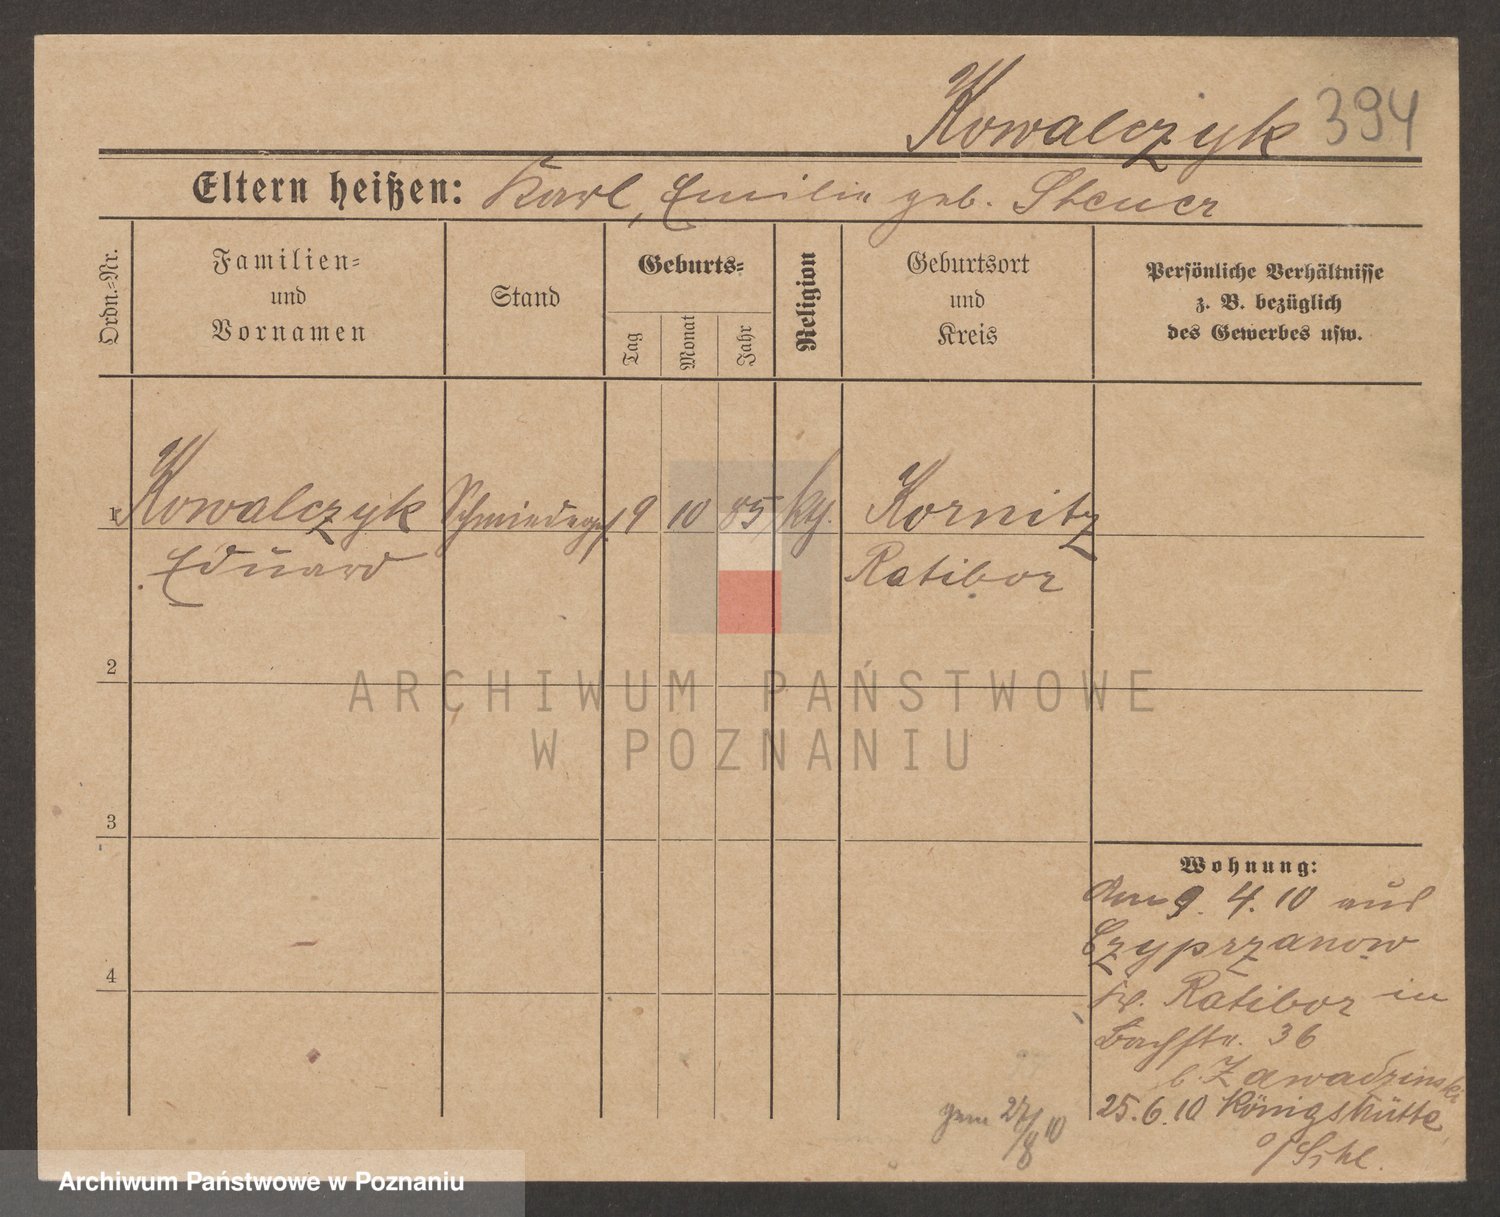 Kowalczyk 394
Eltern heißen: Karl, Emilie geb. Steuer
Ordn.=Nr.
Familien=
und
Vornamen
Stand
Geburts=
Tag
Monat
Jahr
Religion
Geburtsort
und
Kreis
Persönliche Verhältnisse
z. B. bezüglich
des Gewerbes usw.
1 Kowalczyk Schmiedeges. 9 10 85 Kornitz
Eduard Ratibor
2
ARCHIWUM PAŃSTWOWE
W POZNANIU
3
Wohnung:
Am 9. 4. 10 aus
Czyprzanow
Kr. Ratibor in
Bachstr. 36
b. Zawadzinski
4
gem 27/8 10
25. 6. 10 Königshütte
o/Schl.
Archiwum Państwowe w Poznaniu